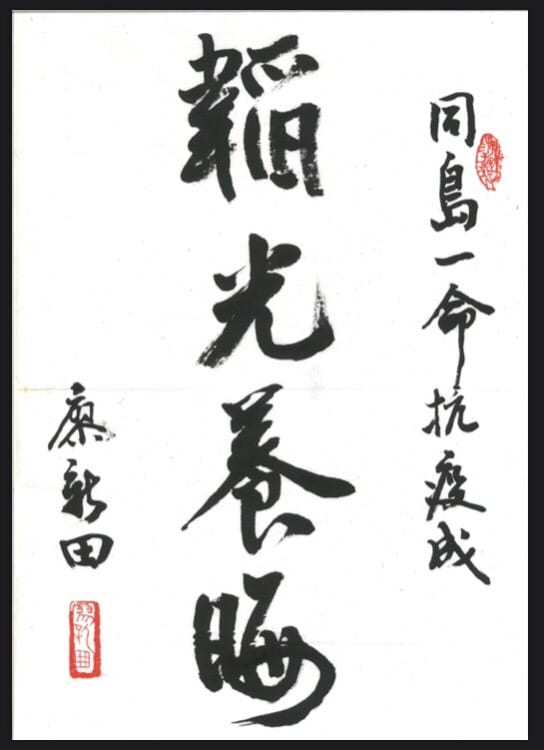 同島一命抗疫成
韜光養晦
廖新田